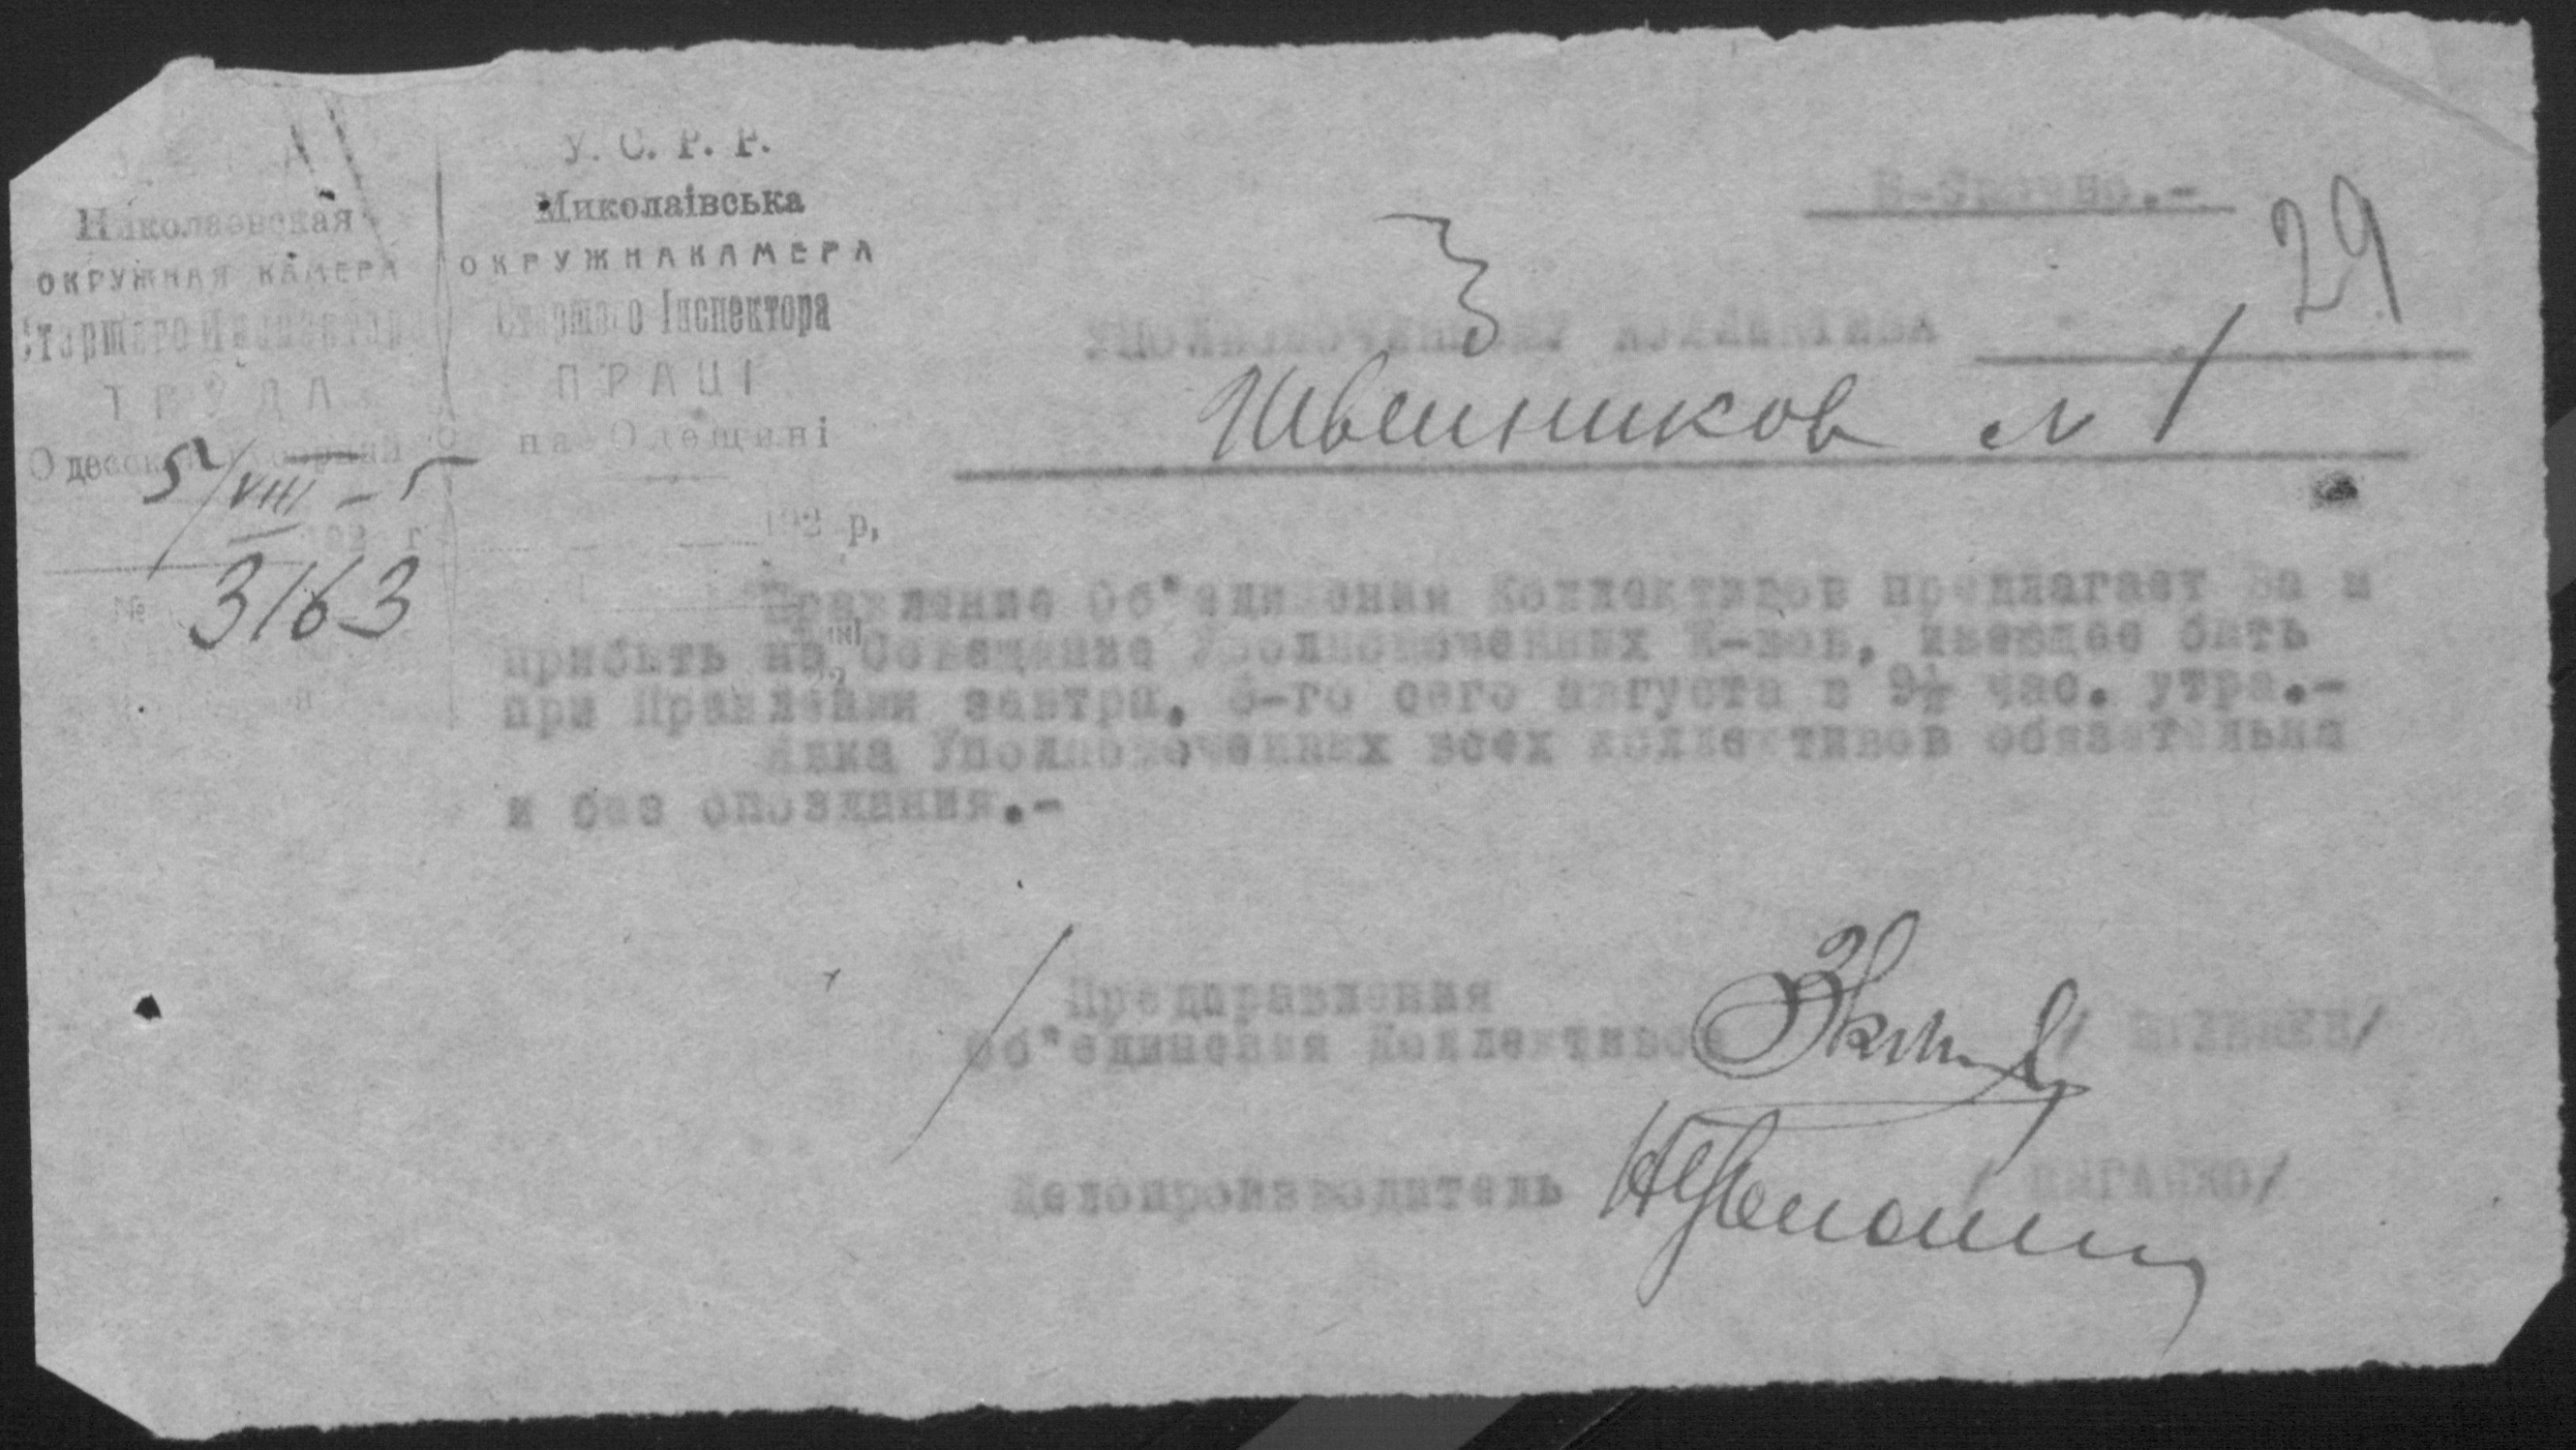 Николаевская
ОКРУЖНАЯ КАМЕРА
Старшего Инспектора
ТРУДА
Одесской
5/VIII - 5
192 г
№ 3163
У. С. Р. Р.
Миколаівська
ОКРУЖНА КАМЕРА
Старшого Інспектора
ПРАЦІ
на Одещині
192 р,
В-Срочно.-
29
3
УПОЛНОМОЧЕННОМУ КОЛЛЕКТИВА
Швейников № 1
Правление Об"единения Коллективов предлагает Ва м
прибыть на Совещание Уполномоченных К-вов, имеющее быть
при Правлении завтра, 6-го сего августа в 9½ час. утра.-
Явка Уполномоченных всех коллективов обязательна
и без опоздания.-
Предправления
Об"единения Коллективов
Делопроизводитель / ЦЫГАНКО/